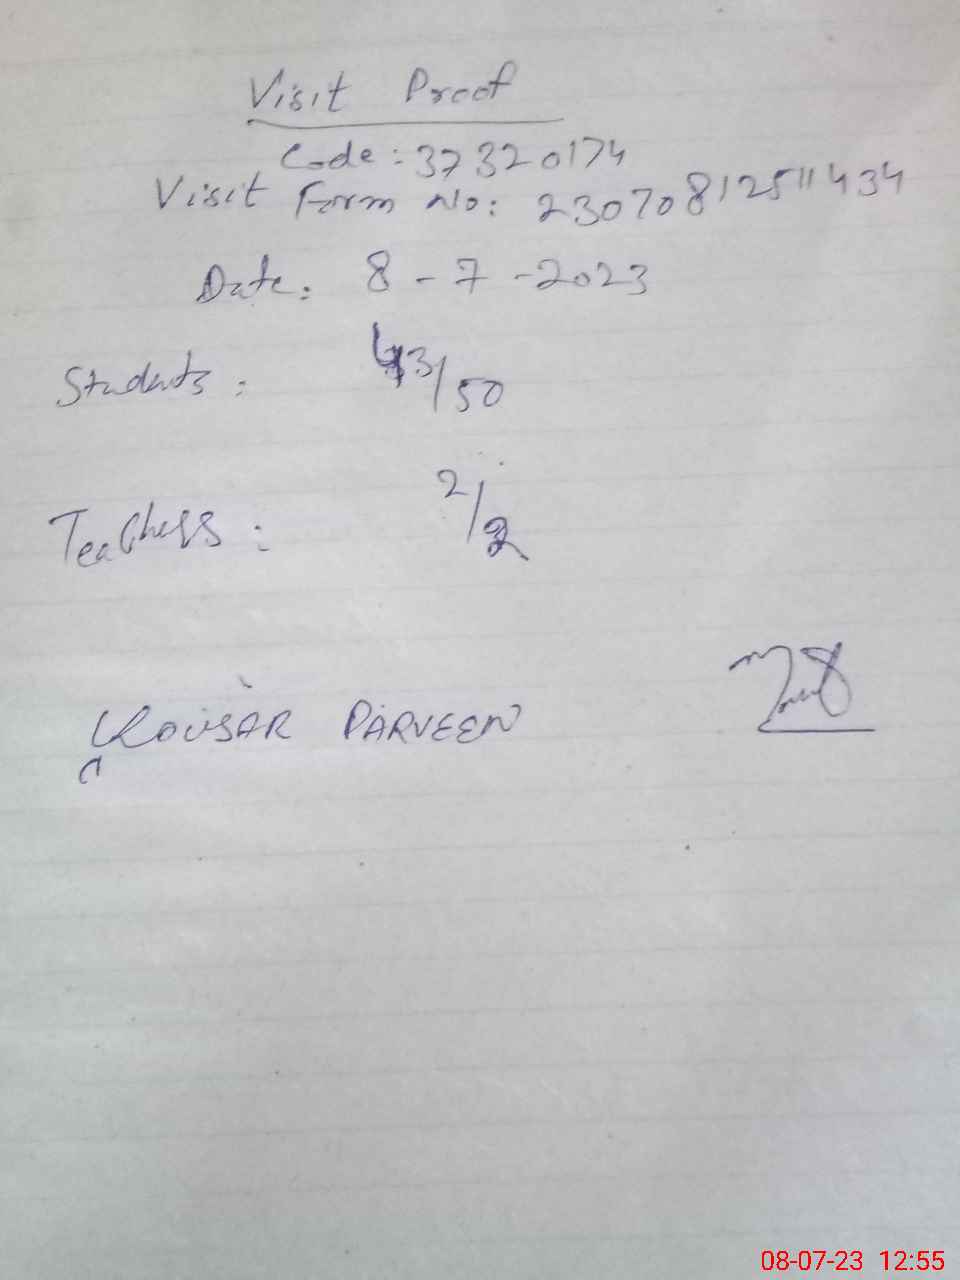 Visit Proof
Code: 37320174
Visit Form No: 23070812511434
Date: 8-7-2023
Students: 43/50
Teachers: 2/2
KOUSAR PARVEEN
08-07-23 12:55